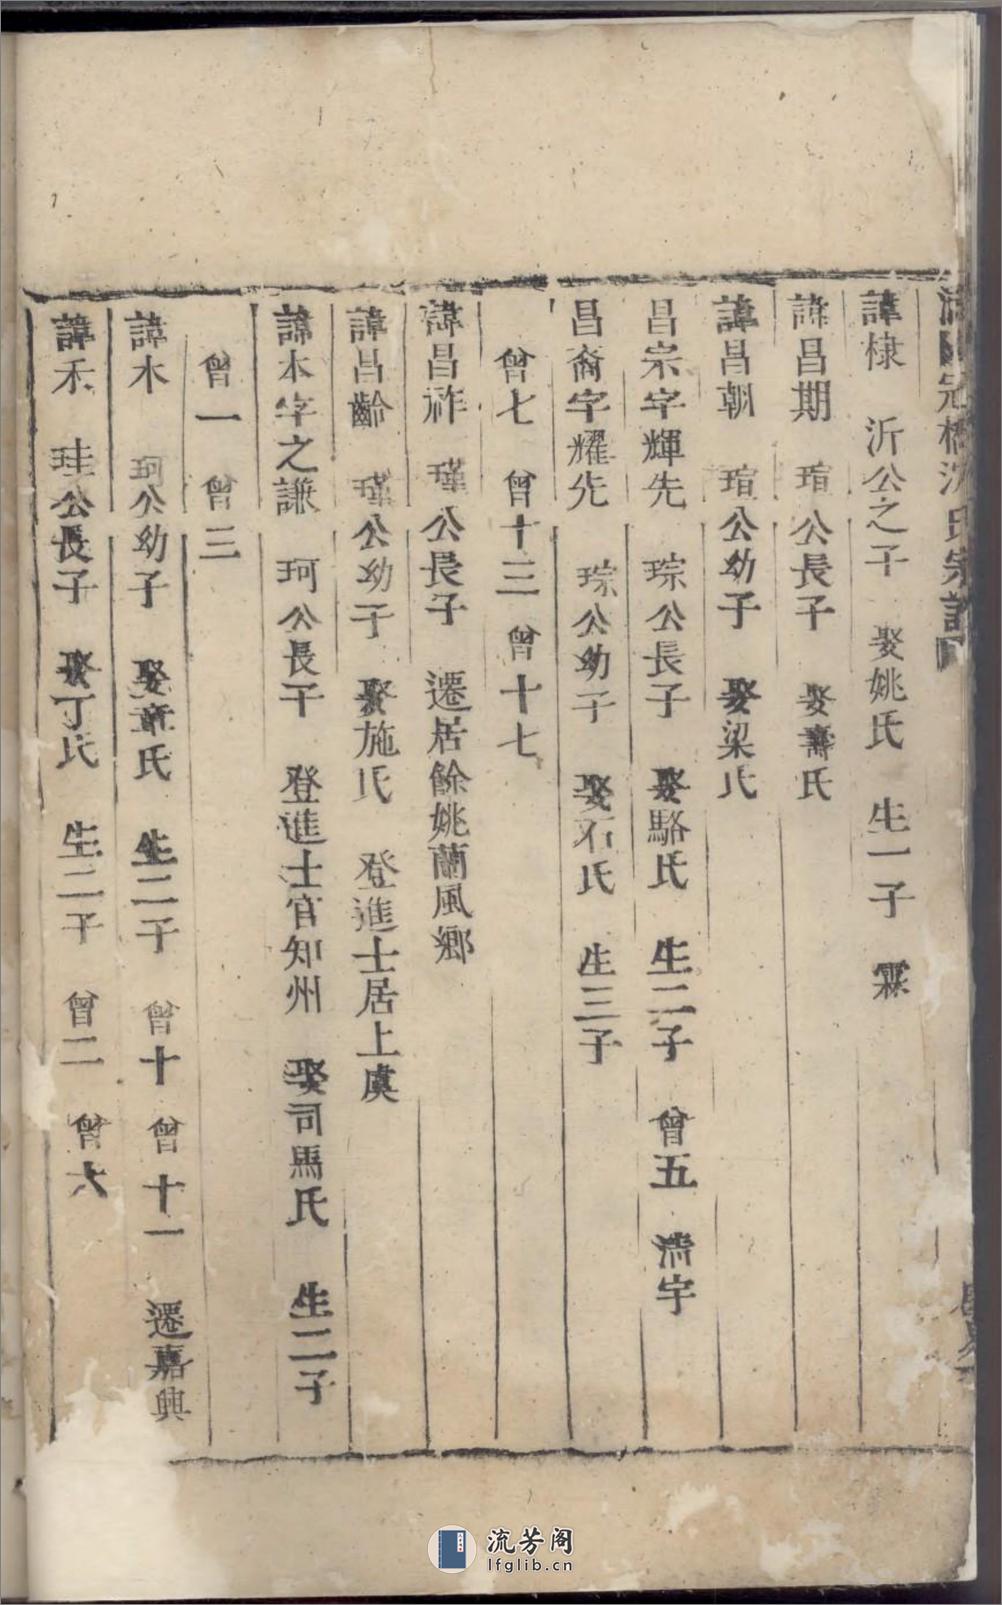 冠橋沈氏宗譜
諱棣　沂公之子　娶姚氏　生一子　霖
諱昌期　瑄公長子　娶壽氏
諱昌朝　瑄公幼子　娶梁氏
昌宗字輝先　琮公長子　娶駱氏　生二子　曾五　沛宇
昌裔字耀先　琮公幼子　娶石氏　生三子
曾七　曾十三　曾十七
諱昌祚　瑾公長子　遷居餘姚蘭風鄉
諱昌齡　瑾公幼子　娶施氏　登進士居上虞
諱本字之謙　珂公長子　登進士官知州　娶司馬氏　生二子
曾一　曾三
諱木　珂公幼子　娶章氏　生二子　曾十　曾十一　遷嘉興
諱禾　珪公長子　娶丁氏　生二子　曾二　曾六
流芳阁
lfglib.cn